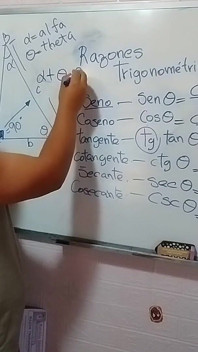 α = alfa
θ = theta
Razones
Trigonométri
α + θ =
b
α
c
90°
θ
b
Seno — Sen θ =
Coseno — Cos θ =
tangente — (tg) tan θ
cotangente — ctg θ
Secante — sec θ =
Cosecante — Csc θ =